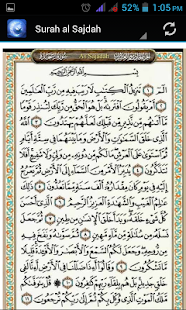 1:05 PM
Surah al Sajdah
بِسْمِ اللَّهِ الرَّحْمَٰنِ الرَّحِيمِ
الٓمٓ ١ تَنزِيلُ ٱلْكِتَٰبِ لَا رَيْبَ فِيهِ مِن رَّبِّ ٱلْعَٰلَمِينَ
٢ أَمْ يَقُولُونَ ٱفْتَرَىٰهُ بَلْ هُوَ ٱلْحَقُّ مِن رَّبِّكَ لِتُنذِرَ
قَوْمًا مَّآ أَتَىٰهُم مِّن نَّذِيرٍ مِّن قَبْلِكَ لَعَلَّهُمْ يَهْتَدُونَ ٣ ٱللَّهُ
ٱلَّذِى خَلَقَ ٱلسَّمَٰوَٰتِ وَٱلْأَرْضَ وَمَا بَيْنَهُمَا فِى سِتَّةِ أَيَّامٍ
ثُمَّ ٱسْتَوَىٰ عَلَى ٱلْعَرْشِ مَا لَكُم مِّن دُونِهِۦ مِن وَلِىٍّ وَلَا شَفِيعٍ
أَفَلَا تَتَذَكَّرُونَ ٤ يُدَبِّرُ ٱلْأَمْرَ مِنَ ٱلسَّمَآءِ إِلَى ٱلْأَرْضِ ثُمَّ يَعْرُجُ
إِلَيْهِ فِى يَوْمٍ كَانَ مِقْدَارُهُۥٓ أَلْفَ سَنَةٍ مِّمَّا تَعُدُّونَ ٥ ذَٰلِكَ عَٰلِمُ
ٱلْغَيْبِ وَٱلشَّهَٰدَةِ ٱلْعَزِيزُ ٱلرَّحِيمُ ٦ ٱلَّذِىٓ أَحْسَنَ كُلَّ
شَىْءٍ خَلَقَهُۥ وَبَدَأَ خَلْقَ ٱلْإِنسَٰنِ مِن طِينٍ ٧ ثُمَّ جَعَلَ
نَسْلَهُۥ مِن سُلَٰلَةٍ مِّن مَّآءٍ مَّهِينٍ ٨ ثُمَّ سَوَّىٰهُ وَنَفَخَ فِيهِ
مِن رُّوحِهِۦ وَجَعَلَ لَكُمُ ٱلسَّمْعَ وَٱلْأَبْصَٰرَ وَٱلْأَفْـِٔدَةَ قَلِيلًا
مَّا تَشْكُرُونَ ٩ وَقَالُوٓا۟ أَءِذَا ضَلَلْنَا فِى ٱلْأَرْضِ أَءِنَّا لَفِى
خَلْقٍ جَدِيدٍۭ بَلْ هُم بِلِقَآءِ رَبِّهِمْ كَٰفِرُونَ ١٠ قُلْ يَتَوَفَّىٰكُم
مَّلَكُ ٱلْمَوْتِ ٱلَّذِى وُكِّلَ بِكُمْ ثُمَّ إِلَىٰ رَبِّكُمْ تُرْجَعُونَ